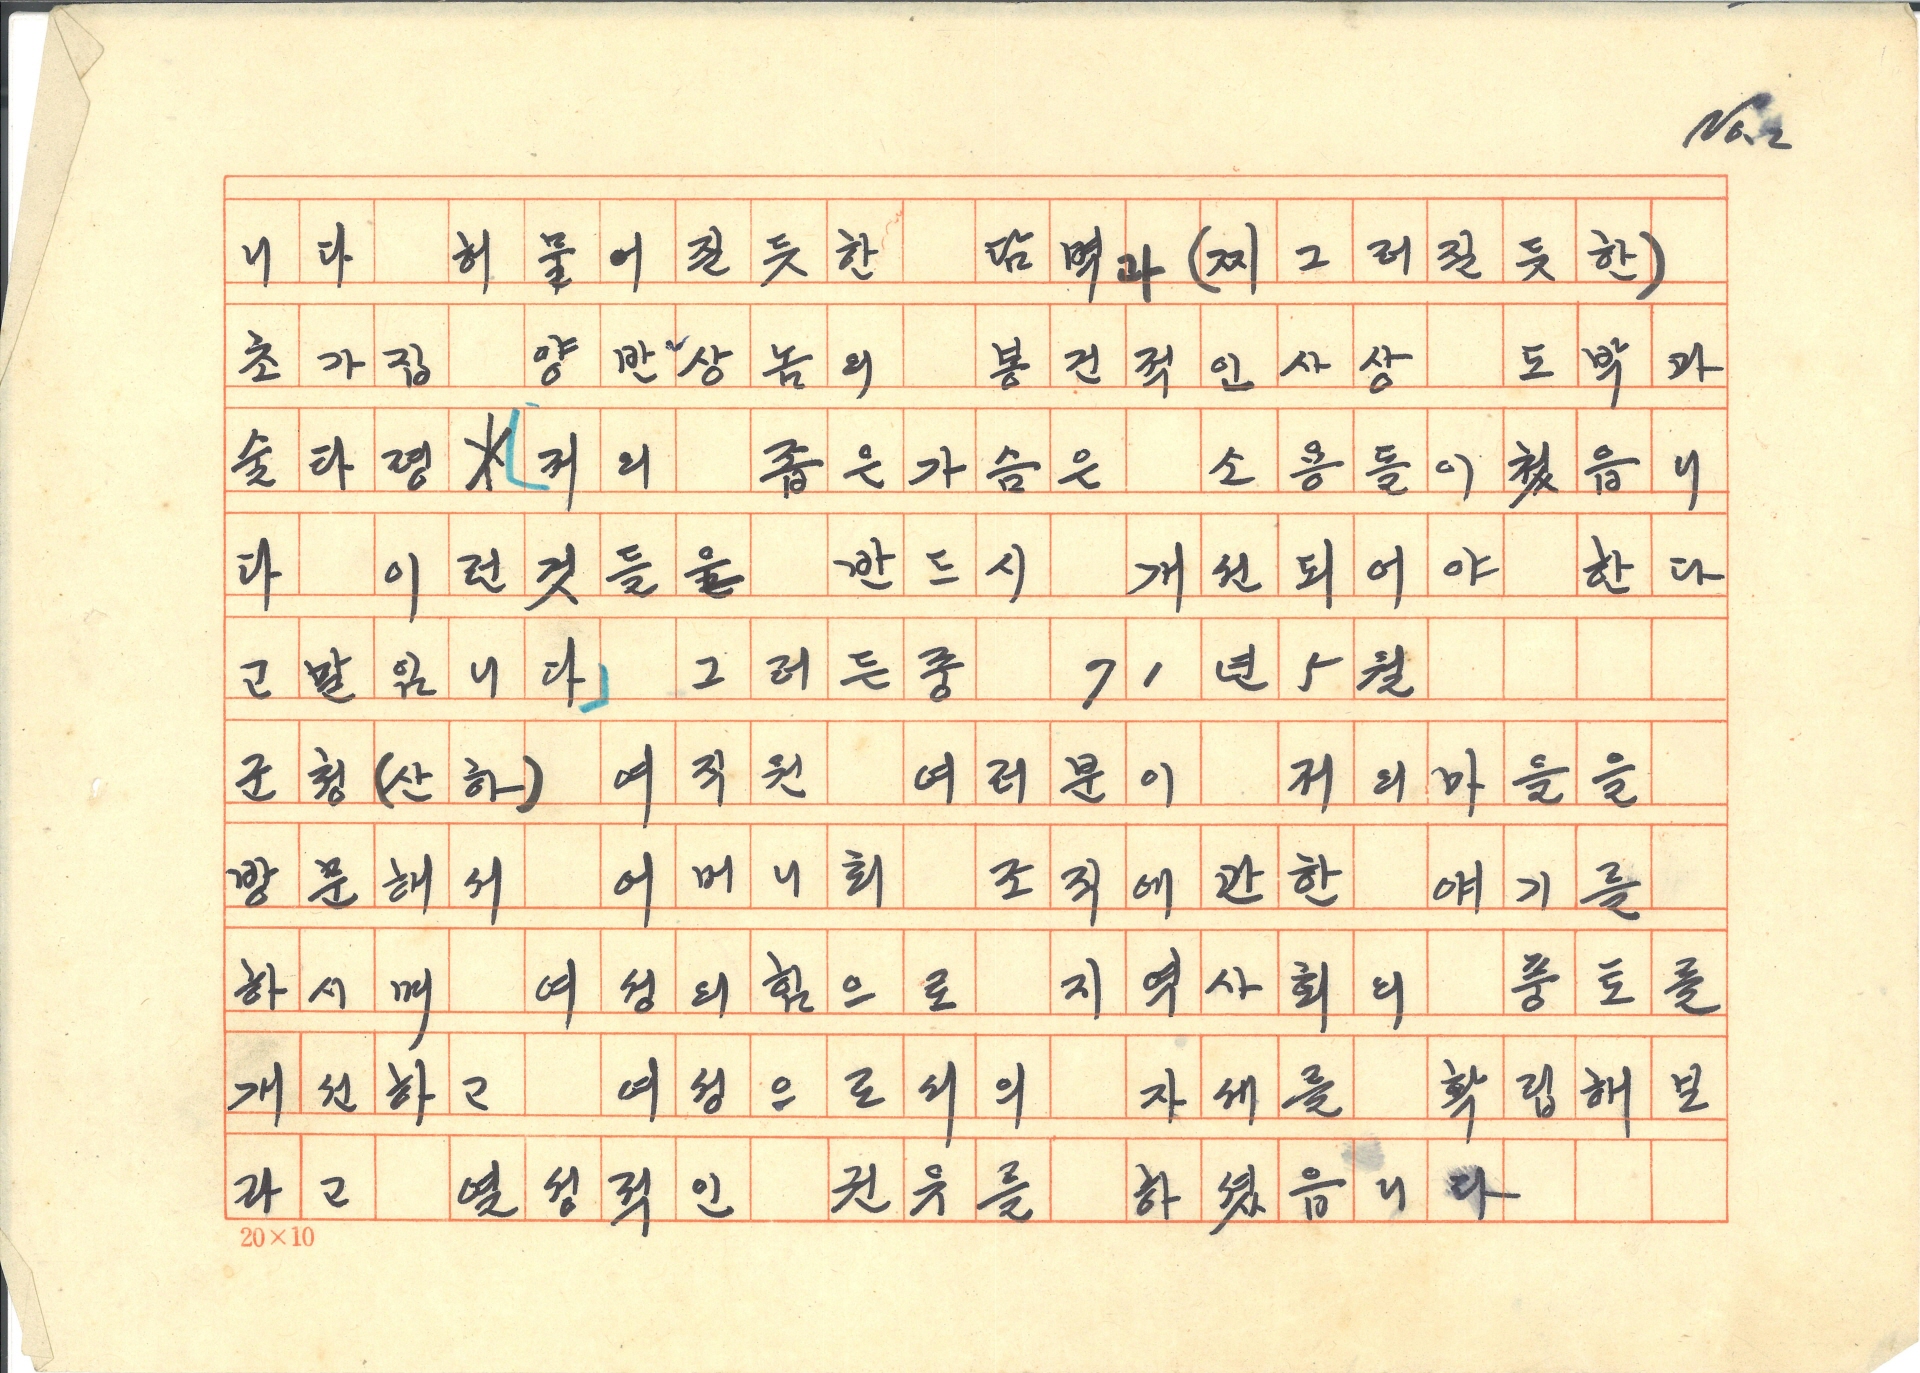 No.2
니다 허물어질듯한 담벽과(찌그러질듯한)
초가집 양반상놈의 봉건적인사상 도박과
술타령 저의 좁은가슴은 소용들이쳤읍니
다 이런것들을 반드시 개선되어야 한다
고말입니다」 그러든중 71년5월
군청(산하) 여직원 여러분이 저의마을을
방문해서 어머니회 조직에관한 얘기를
하시며 여성의힘으로 지역사회의 풍토를
개선하고 여성으로서의 자세를 확립해보
라고 열성적인 권유를 하셨읍니다
20×10